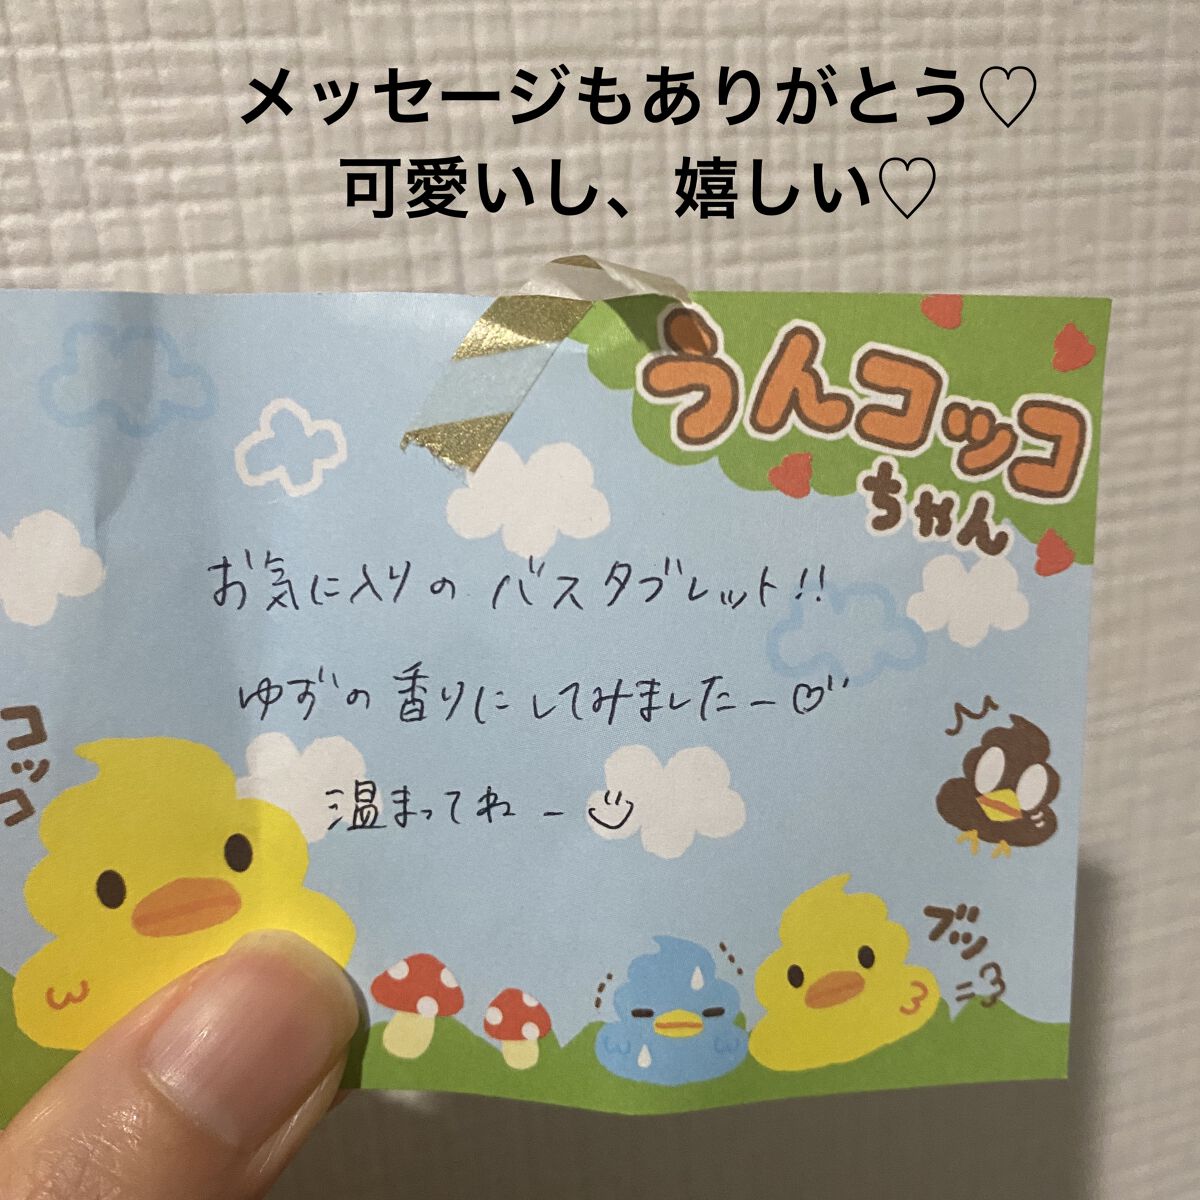 メッセージもありがとう♡
可愛いし、嬉しい♡
うんコッコ
ちゃん
お気に入りの バスタブレット!!
ゆずの香りにしてみましたー♡
温まってねー
コッコ
ブッ